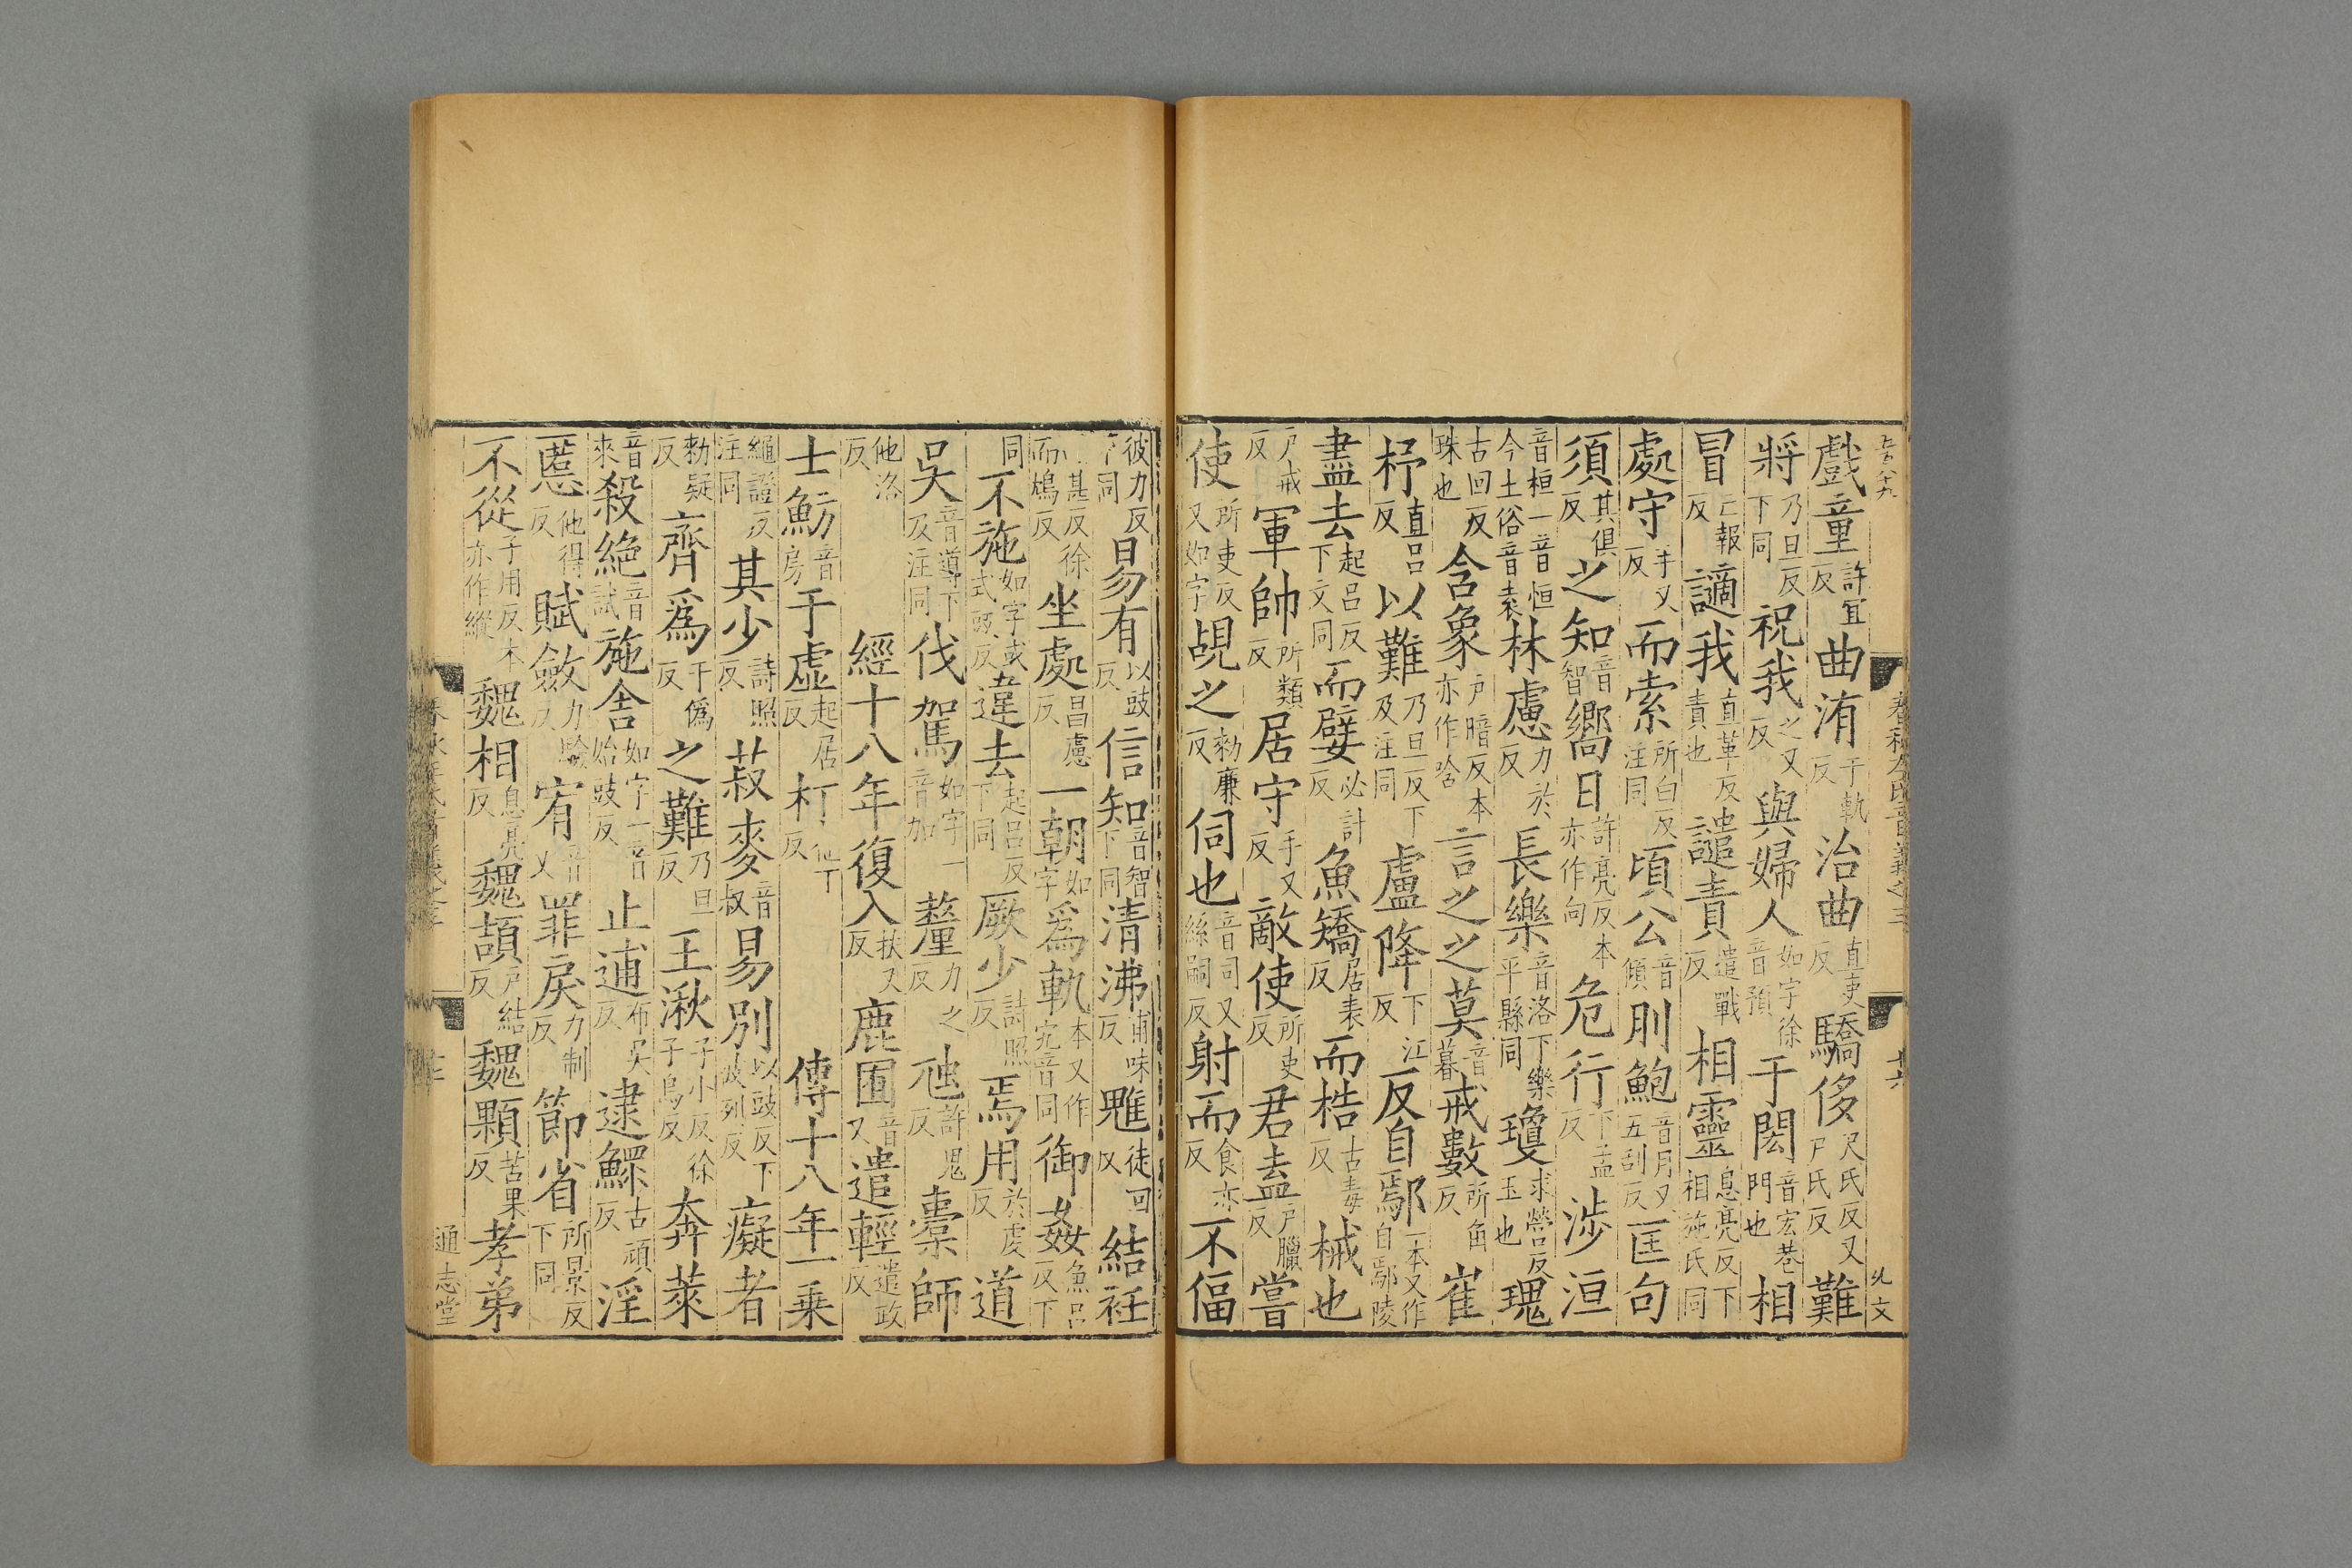 戲童許宜反曲洧于軌反治曲直吏反驕侈尺氏反又尸氏反難
將乃旦反下同祝我之又反與婦人如字徐音預于閎音宏巷門也相
冒亡報反讁我直革反責也譴責遣戰反相靈息亮反下相施氏同
處守手又反而索所白反注同頃公音傾刖鮑音月又五刮反匡句
須其俱反之知音智嚮日許亮反本亦作向危行下孟反涉洹
音桓一音恒今土俗音袁林慮力於反長樂音洛下樂平縣同瓊求營反玉也瑰
古回反珠也含象戶暗反本亦作唅言之之莫音暮戒數所角反崔
杼直呂反以難乃旦反下及注同盧降下江反反自鄢一本又作自鄢陵
盡去起呂反下文同而嬖必計反魚矯居表反而梏古毒反械也
戶戒反軍帥所類反居守手又反敵使所吏反君盍戶臘反嘗
使所吏反又如字覘之勑廉反伺也音司又絲嗣反射而食亦反不偪
彼力反下同易有以豉反信知音智下同清沸甫味反魋徒回反結衽
而甚反徐而鴆反坐處昌慮反一朝如字爲軌本又作宄音同御姦魚呂反下
同不施如字或式豉反違去起呂反下同厥少詩照反焉用於虔反道
吳音導下及注同伐駕如字一音加釐力之反虺許鬼反橐師
他洛反經十八年復入扶又反鹿囿音又遣輕遣政反
士魴音房于虛起居反朾他丁反傳十八年一乗
繩證反注同其少詩照反菽麥音叔易別以豉反下彼列反癡者
勑疑反齊爲于僞反之難乃旦反王湫子小反徐子鳥反奔萊
音來殺絕音試施舍如字一音始豉反止逋布吳反逮鰥古頑反淫
慝他得反賦斂力驗反宥音又罪戾力制反節省所景反下同
不從子用反本亦作縱魏相息亮反魏頡戶結反魏顆苦果反孝弟
通志堂